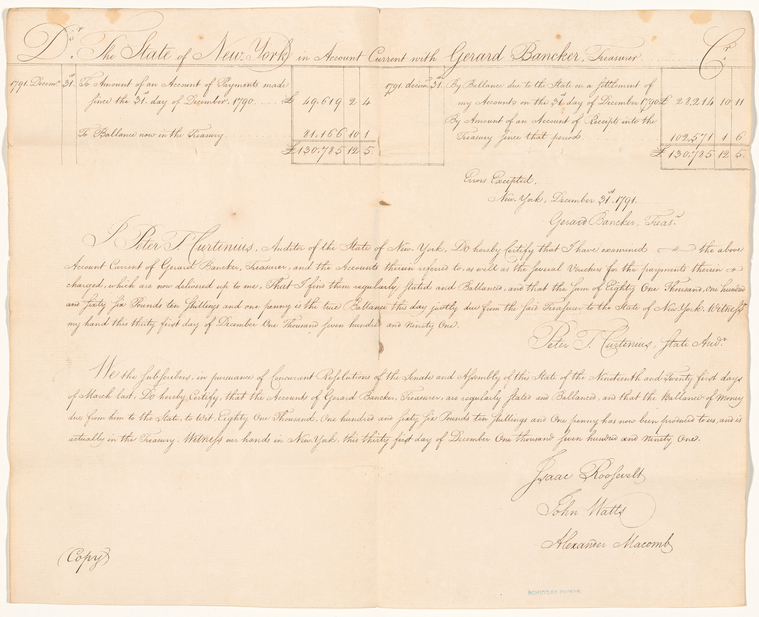 Dr. The State of New York in Account Current with Gerard Bancker, Treasurer Cr.
1791 Decemr. 31. To Amount of an Account of Payments made
since the 31st. day of December 1790 .... £ 49.619 2 4
To Ballance now in the Treasury 81.166 10 1
£ 130.785 12 5
1791. decemr. 31. By Ballance due to the State on a Settlement of
my Accounts on the 31 day of December 1790 £ 28.214 10 11
By Amount of an Account of Receipts into the
Treasury since that period 102.571 1 6
£ 130.785 12 5
Errors Excepted,
New York, December 31st. 1791.
Gerard Bancker, Treasr.
I Peter T. Curtenius, Auditor of the State of New York, Do hereby Certify that I have examined the above
Account Current of Gerard Bancker, Treasurer, and the Accounts therein referred to, as well as the several Vouchers for the payments therein
charged, which are now delivered up to me. That I find them regularly stated and Ballanced, and that the Sum of Eighty One Thousand, One hundred
and Sixty Six Pounds ten Shillings and one penny is the true Ballance this day justly due from the said Treasurer to the State of New York. Witness
my hand this thirty first day of December One Thousand seven hundred and Ninety One.
Peter T. Curtenius, State Audr.
We the Subscribers, in pursuance of Concurrent Resolutions of the Senate and Assembly of this State of the Nineteenth and Twenty first days
of March last, Do hereby Certify, that the Accounts of Gerard Bancker, Treasurer, are regularly stated and Ballanced, and that the Ballance of Money
due from him to the State, to Wit, Eighty One Thousand, One hundred and Sixty Six Pounds ten Shillings and One penny has now been produced to us, and is
actually in the Treasury. Witness our hands in New York, this thirty first day of December One thousand seven hundred and Ninety One.
Isaac Roosevelt
John Watts
Alexander Macomb
(Copy)